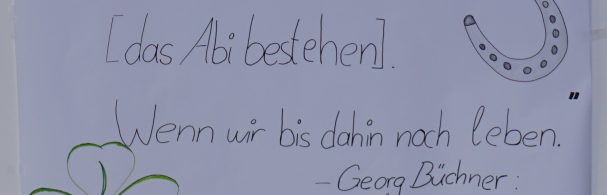 [das Abi bestehen].
"
Wenn wir bis dahin noch leben.
- Georg Büchner